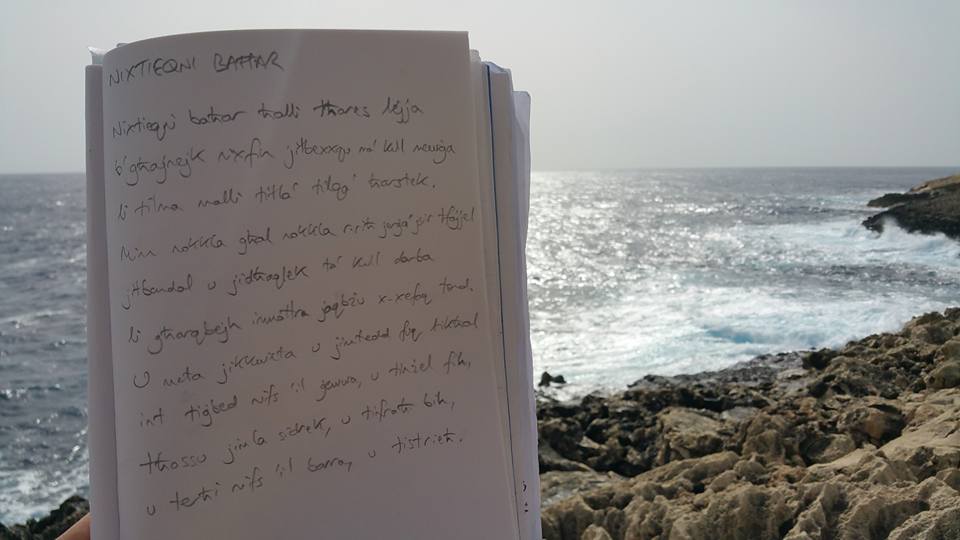 NIXTIEQNI BAĦAR
Nixtieqni baħar ħalli tħares lejja
b'għajnejk nixfin jilbexxqu ma' kull mewġa
li tilma malli titla' tilqa' ħarstek.
Minn nokkla għal nokkla r-riħ jerġa' jsir tfajjel
jitbandal u jidħaqlek ta' kull darba
li għarqbejh immotra jaqbżu x-xefaq tond.
U meta jikkwieta u jintedd fuq tiktħal
int tiġbed nifs 'il ġewwa, u tinżel fih,
tħossu jimla sidrek, u tifraħ bih,
u terħi nifs 'il barra, u tistrieħ.